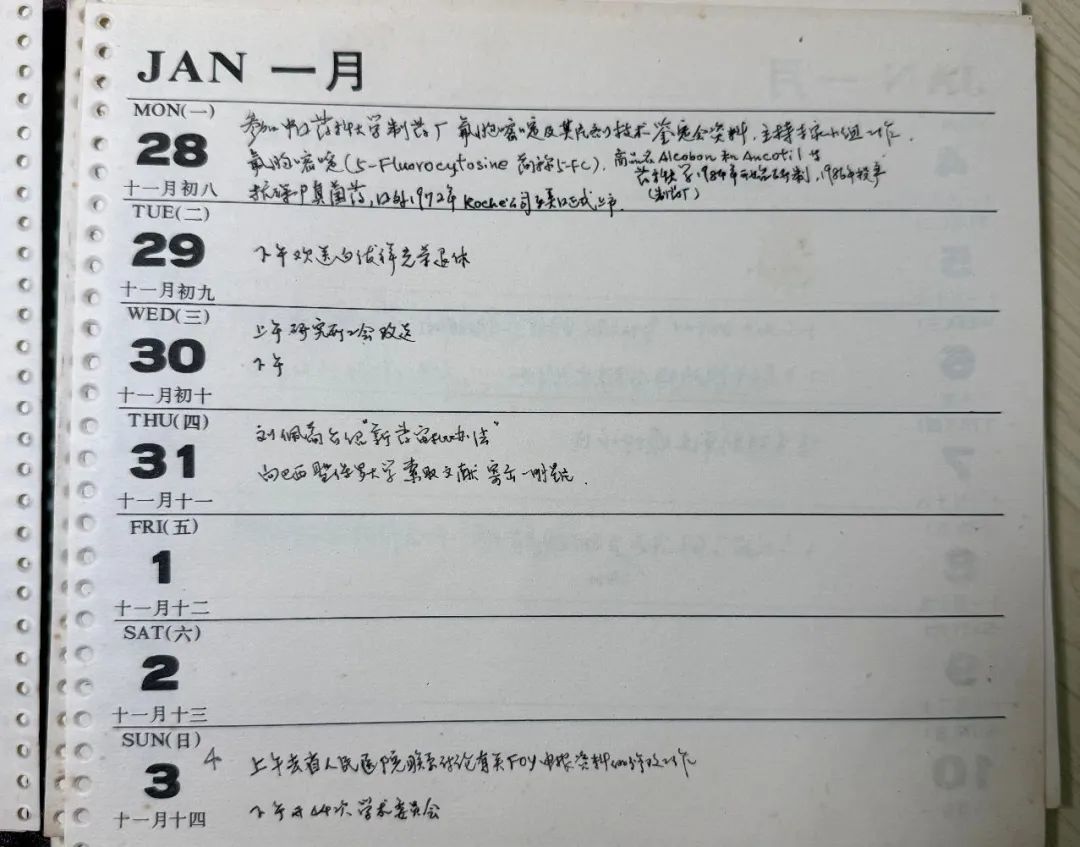 JAN 一月
MON(一)
28
十一月初八
参加中国药科大学制药厂氟胞嘧啶及其片剂技术鉴定会资料,主持专家小组工作.
氟胞嘧啶(5-Fluorocytosine 简称5-FC). 商品名Alcobon和Ancotil
药科大 1984年开始研制,1986年投产
抗 真菌药,国外1972年Roche公司 正式上市.
(制药厂)
TUE(二)
29
十一月初九
下午欢送 光荣退休
WED(三)
30
十一月初十
上午研究所工会改选
下午
THU(四)
31
十一月十一
刘佩 "新 审批办法"
向巴西 大学索取文献 寄出一明信
FRI(五)
1
十一月十二
SAT(六)
2
十一月十三
SUN(日)
3
十一月十四
4
上午去省人民医院联系讨论有关FOY申报资料的修改工作
下午开 次学术委员会